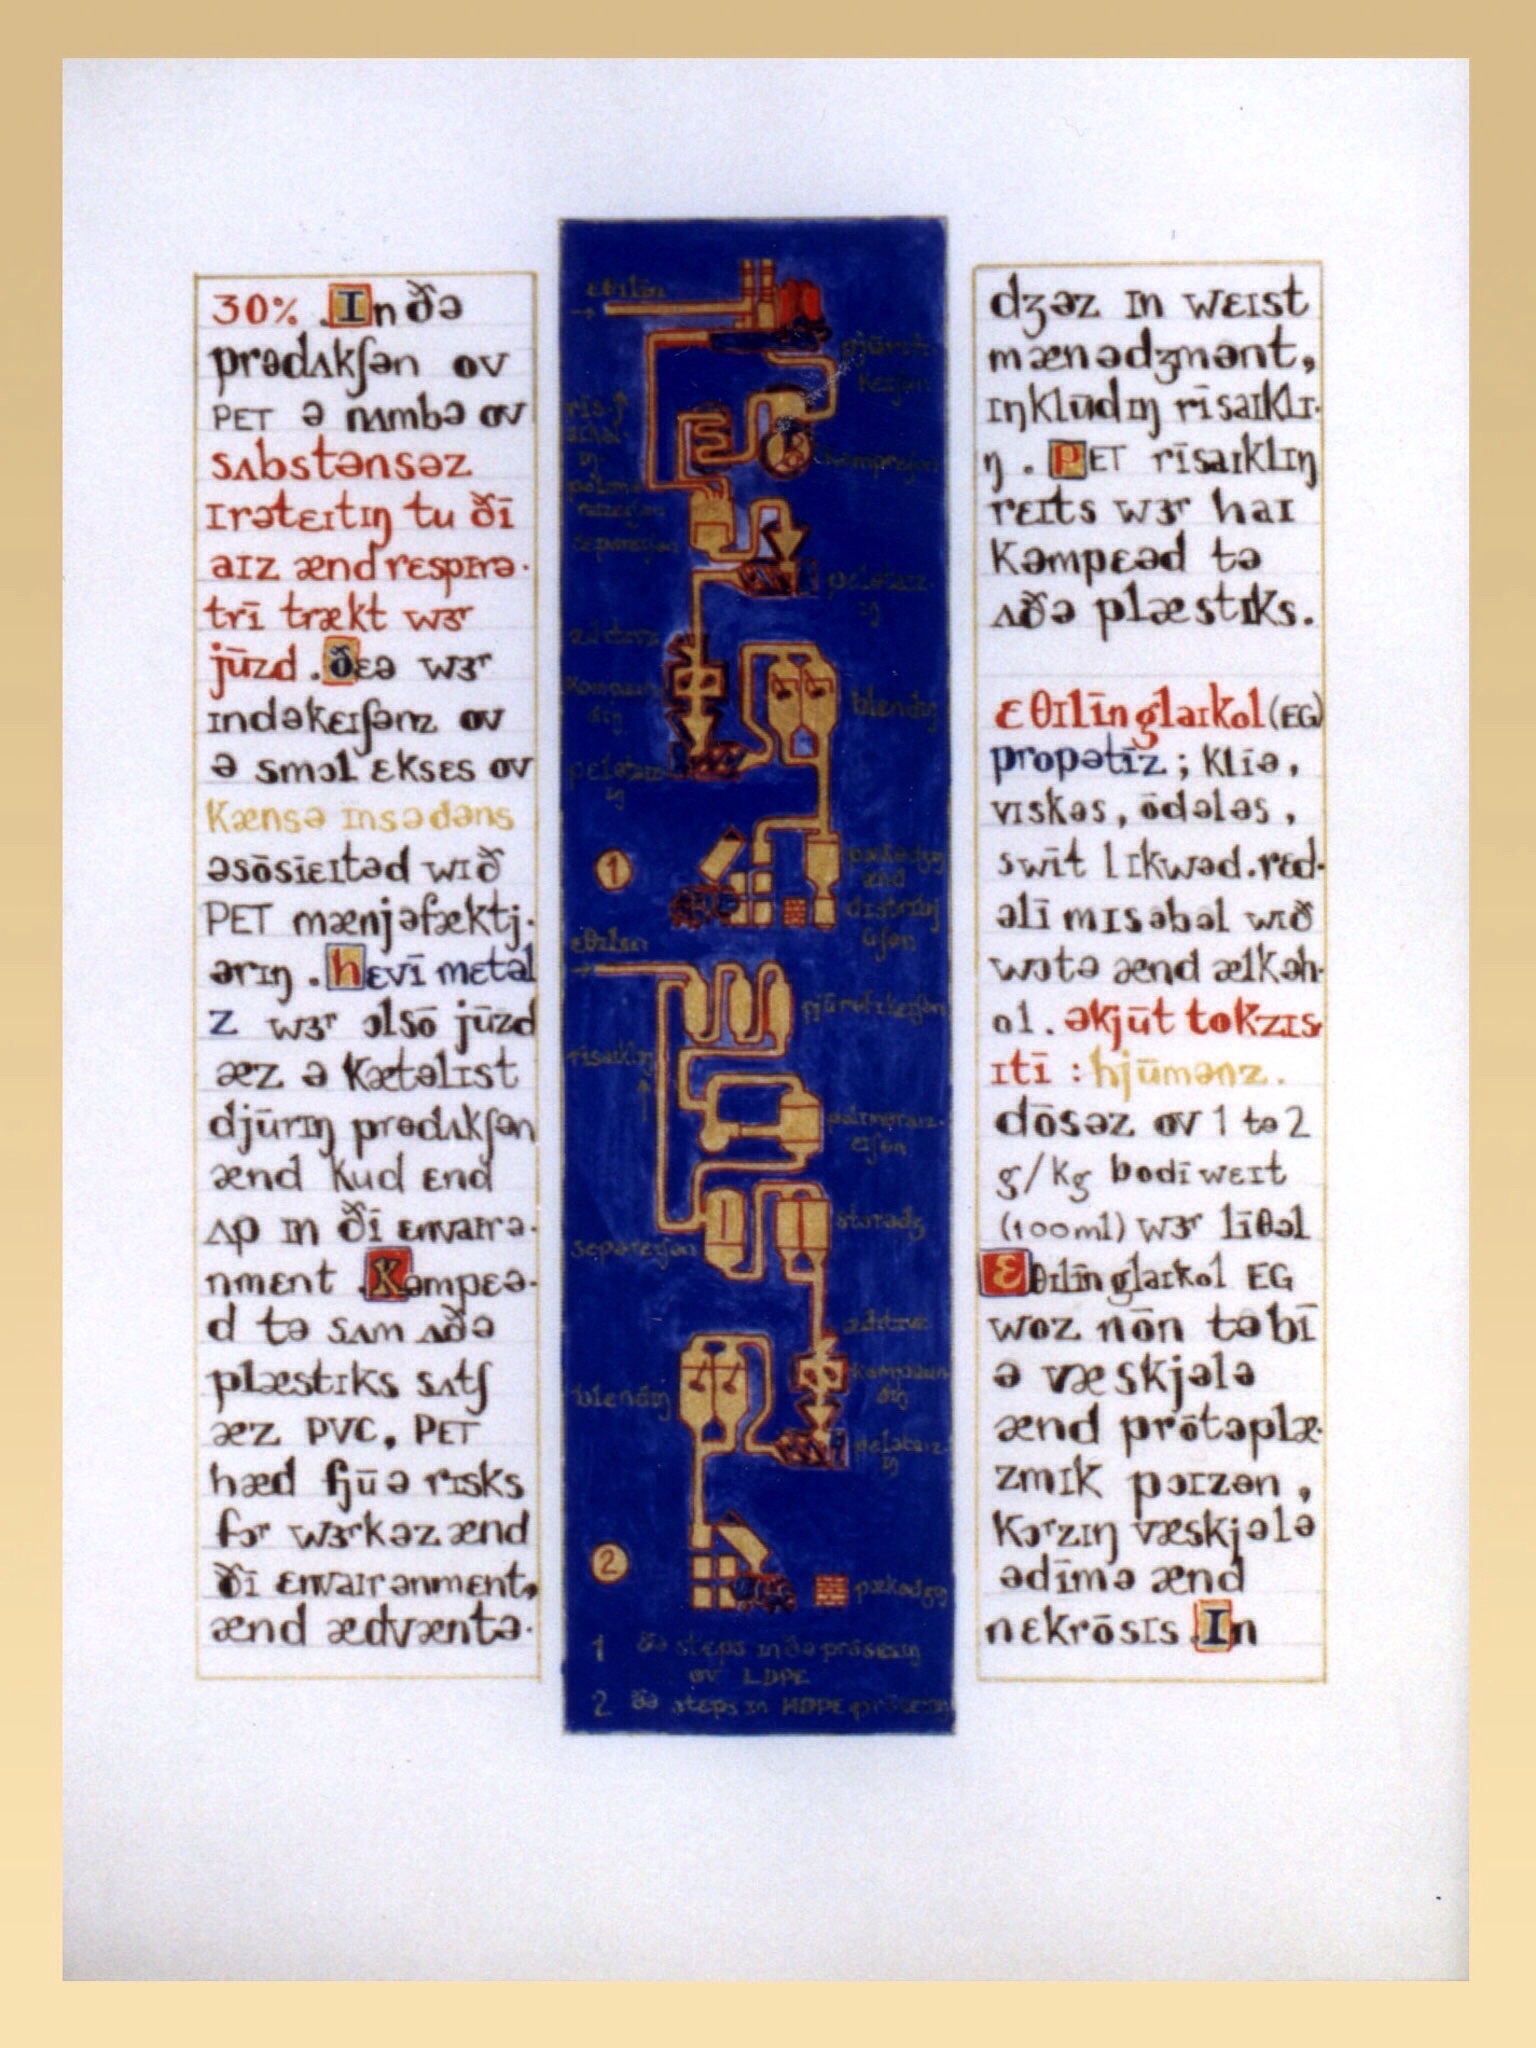 30% . In ðə
prədʌkʃən ov
PET ə nʌmbə ov
sʌbstənsəz
ɪrəteɪtɪŋ tu ðī
aɪz ænd rɛspɪrə.
trī trækt wɜʳ
jūzd . ðɛə wɜʳ
ɪndəkɛɪʃənz ov
ə smɔl ɛksɛs ov
kænsə ɪnsədəns
əsōsīɛɪtəd wɪð
PET mænjəfæktj.
ərɪŋ . hɛvī mɛtəl
z wɜʳ ɔlsō jūzd
æz ə kætəlɪst
djūrɪŋ prədʌkʃən
ænd kud ɛnd
ʌp ɪn ðī ɛnvaɪrə.
nmɛnt . kəmpɛə.
d tə sʌm ʌðə
plæstɪks sʌtʃ
æz PVC, PET
hæd fjūə rɪsks
fɔʳ wɜʳkəz ænd
ðī ɛnvaɪrənmɛnt,
ænd ædvæntə.
ɛθɪlīn
kɛɪʃən
kəmprɛʃən
pɛlətaɪz.
ɪŋ
blɛndɪŋ
pɛlətaɪz
ɪŋ
1
pækədʒɪŋ
ænd
dɪstrɪbj
ūʃən
pjūrəfɪkɛɪʃən
rīsaɪklɪŋ
ɛɪʃən
stɔrədʒ
sɛpərɛɪʃən
blɛndɪŋ
pɛlətaɪz.
ɪŋ
2
pækədʒɪŋ
1 ðə stɛps ɪn ðə prōsɛsɪŋ
ov LDPE
2 ðə stɛps ɪn HDPE prōsɛsɪŋ
dʒəz ɪn wɛɪst
mænədʒmənt,
ɪŋklūdɪŋ rīsaɪklɪ.
ŋ . PET rīsaɪklɪŋ
rɛɪts wɜʳ haɪ
kəmpɛəd tə
ʌðə plæstɪks.
ɛθɪlīn glaɪkol (EG)
propətīz ; klīə,
vɪskəs, ōdələs,
swīt lɪkwəd. rɛd.
əlī mɪsəbəl wɪð
wɔtə ænd ælkəh.
ol. əkjūt tokzɪs.
ɪtī : hjūmənz.
dōsəz ov 1 tə 2
g/kg bodī wɛɪt
(100ml) wɜʳ līθəl
ɛθɪlīn glaɪkol EG
woz nōn tə bī
ə væskjələ
ænd prōtəplæ.
zmɪk pɔɪzən,
kɔʳzɪŋ væskjələ
ədīmə ænd
nɛkrōsɪs . In